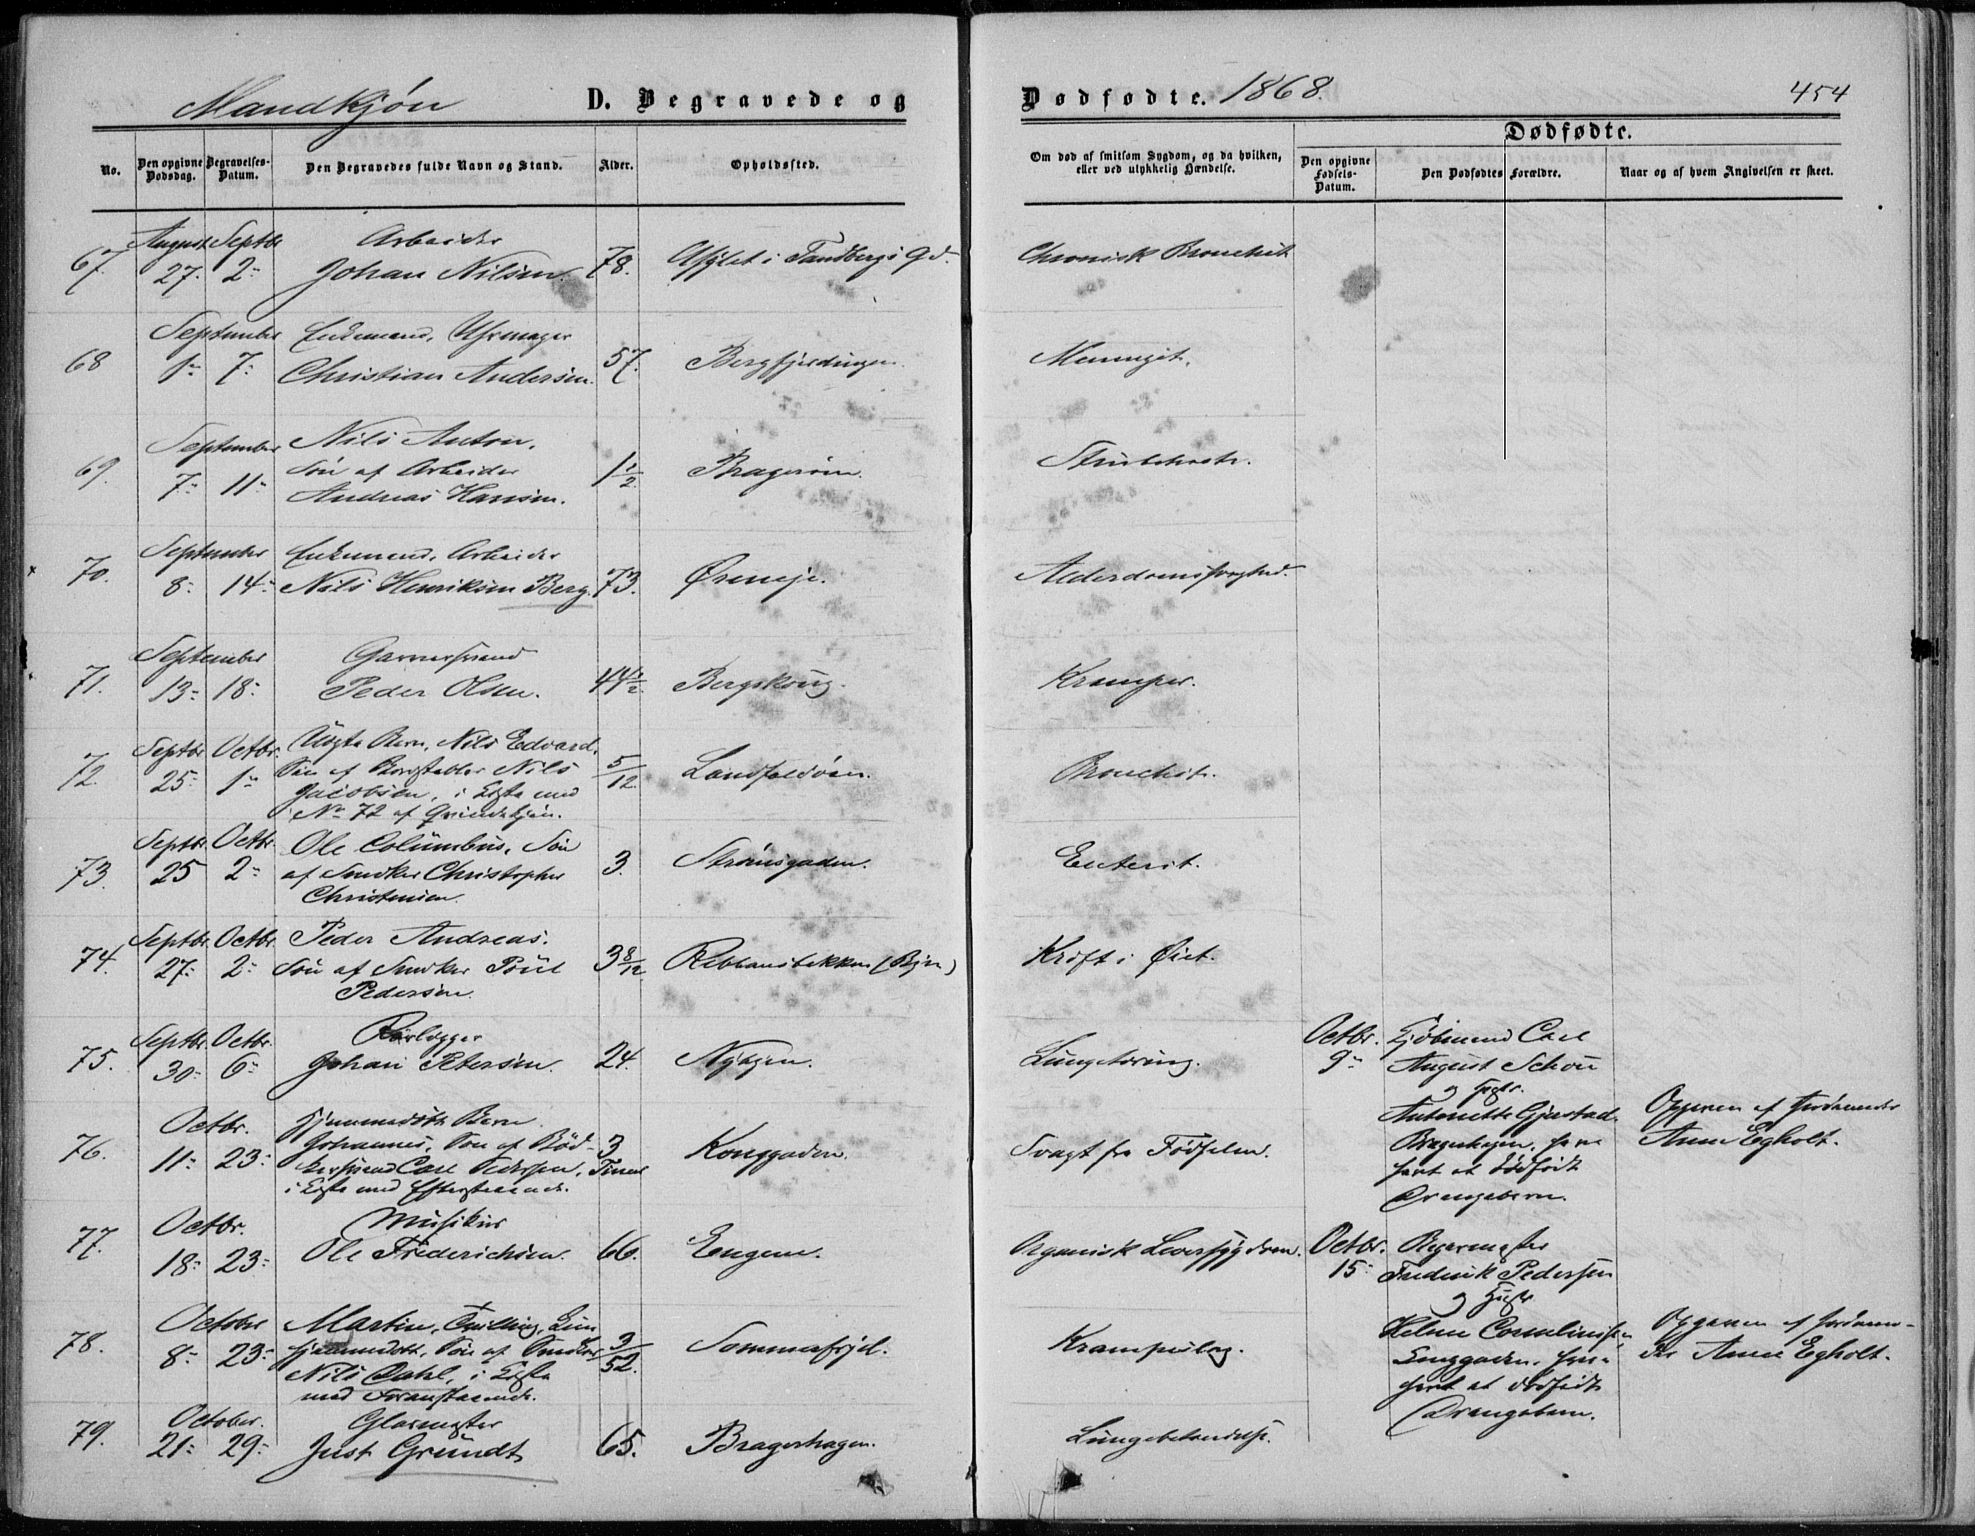 Mandkjøn D. Begravede og Dødfødte. 1868. 454
No. Den opgivne Dødsdag. Begravelses-Datum. Den Begravedes fulde Navn og Stand. Alder. Opholdssted. Om død af smitsom Sygdom, og da hvilken, eller ved ulykkelig Hændelse.
Dødfødte.
Den opgivne Fødsels-Datum. Den Dødfødtes Forældre. Naar og af hvem Angivelsen er skeet.
August Septbr Arbeider
67. 27. 2- Johan Nilsen. 78. Asylet i Tandbergs Gd. Chronisk Bronchit
September Enkemand,
68 1- 7- Christian Andersen. 57. Bergfjerdingen. Meningit.
September Nils Anton,
69. 7- 11- Søn af Arbeider 1 1/2 Bragerøen. Strubehoste.
Andreas Hansen.
September Enkemand, Arbeider
70. 8- 14- Nils Henriksen Berg. 73. Øreneje. Alderdomssvaghed.
September Garversvend
71. 13- 18- Peder Olsen. 44 1/2 Bergskoug. Kramper.
Septbr. Octbr. Uægte Barn, Nils Edvard,
72. 25- 1- Søn af Nils 5/12 Landfaldøen. Bronchit.
Jacobsen, i Kiste med
No 72 af Qvindekjøn.
Septbr. Octbr. Ole Columbus, Søn
73. 25 2- af Snedker Christopher 3. Strømsgaden. Enterit.
Christensen.
Septbr. Octbr. Peder Andreas.
74. 27- 2- Søn af Snedker Poul 3 8/12 Rebbansbakken (Byen) Kræft i Øiet.
Pedersen.
Septbr. Octbr. Rørlægger
75. 30- 6- Johan Petersen. 24. Nybyen. Lungetæring.
Octbr. 9- Kjøbmand Carl
August Schou
og Hustr.
Antonette Gjustad.
Bragerhagen, have
havt et dødfødt
Drengebarn.
Opgiven af Jordemoder
Anne Egholt.
Octbr. Hjemmedøbt Barn
76. 11- 23- Johannes, Søn af Bød- 3 Kongsgaden. Svagt fra Fødselen.
kersvend Carl Pedersen, Timer
i Kiste med Efterstaaende.
Octbr. Musikus
77. 18- 23- Ole Frederichsen. 66. Engene. Organisk Leversygdom.
Octbr. 15-
Fredrik Pedersen
og Hustr
Helene
have
havt et dødfødt
Drengebarn.
Opgiven af Jordemo-
der Anne Egholt.
October Martin, Tvilling,
78. 8- 23- hjemmedøbt, Søn af Snedker 3/52. Sommerfryd. Krampeslag.
Nils Dahl, i Kiste
med Foranstaaende.
October. Glarmester
79. 21- 29- Just Grundt 65. Bragerhagen. Lungebetændelse.